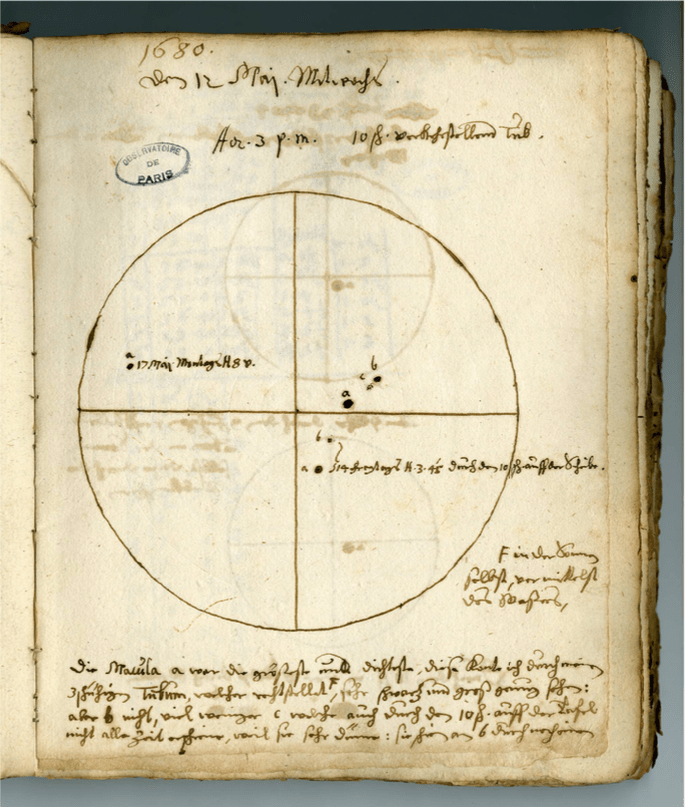 1680.
den 12 Maij. Mitwochs.
Hor. 3 p. m. 10 sch. Tub.
OBSERVATOIRE
DE
PARIS
a
17 Maij Montags H. 8 v.
b
c
a
b
a 14 H. 3. 45 durch den 10 sch. auff der Scheibe.
F in der Sonnen
selbst, vermittelst
des Wassers,
Die Macula a war die gröseste und dichteste, diese konte ich durch einen
3schuhigen Tubum, welcher rechtstellet F, sehr schwach und groß genug sehen:
aber b nicht, viel weniger c welche auch durch den 10 sch. auff der Tafel
nicht alle Zeit weil sie sehr dünne: